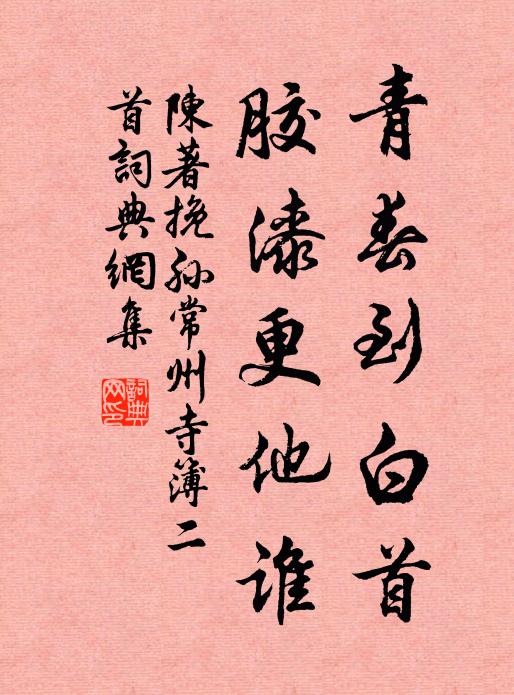 青春到白首
膠漆更他誰
陳著挽孫常州寺簿二
首詞典網集
詞典
网印